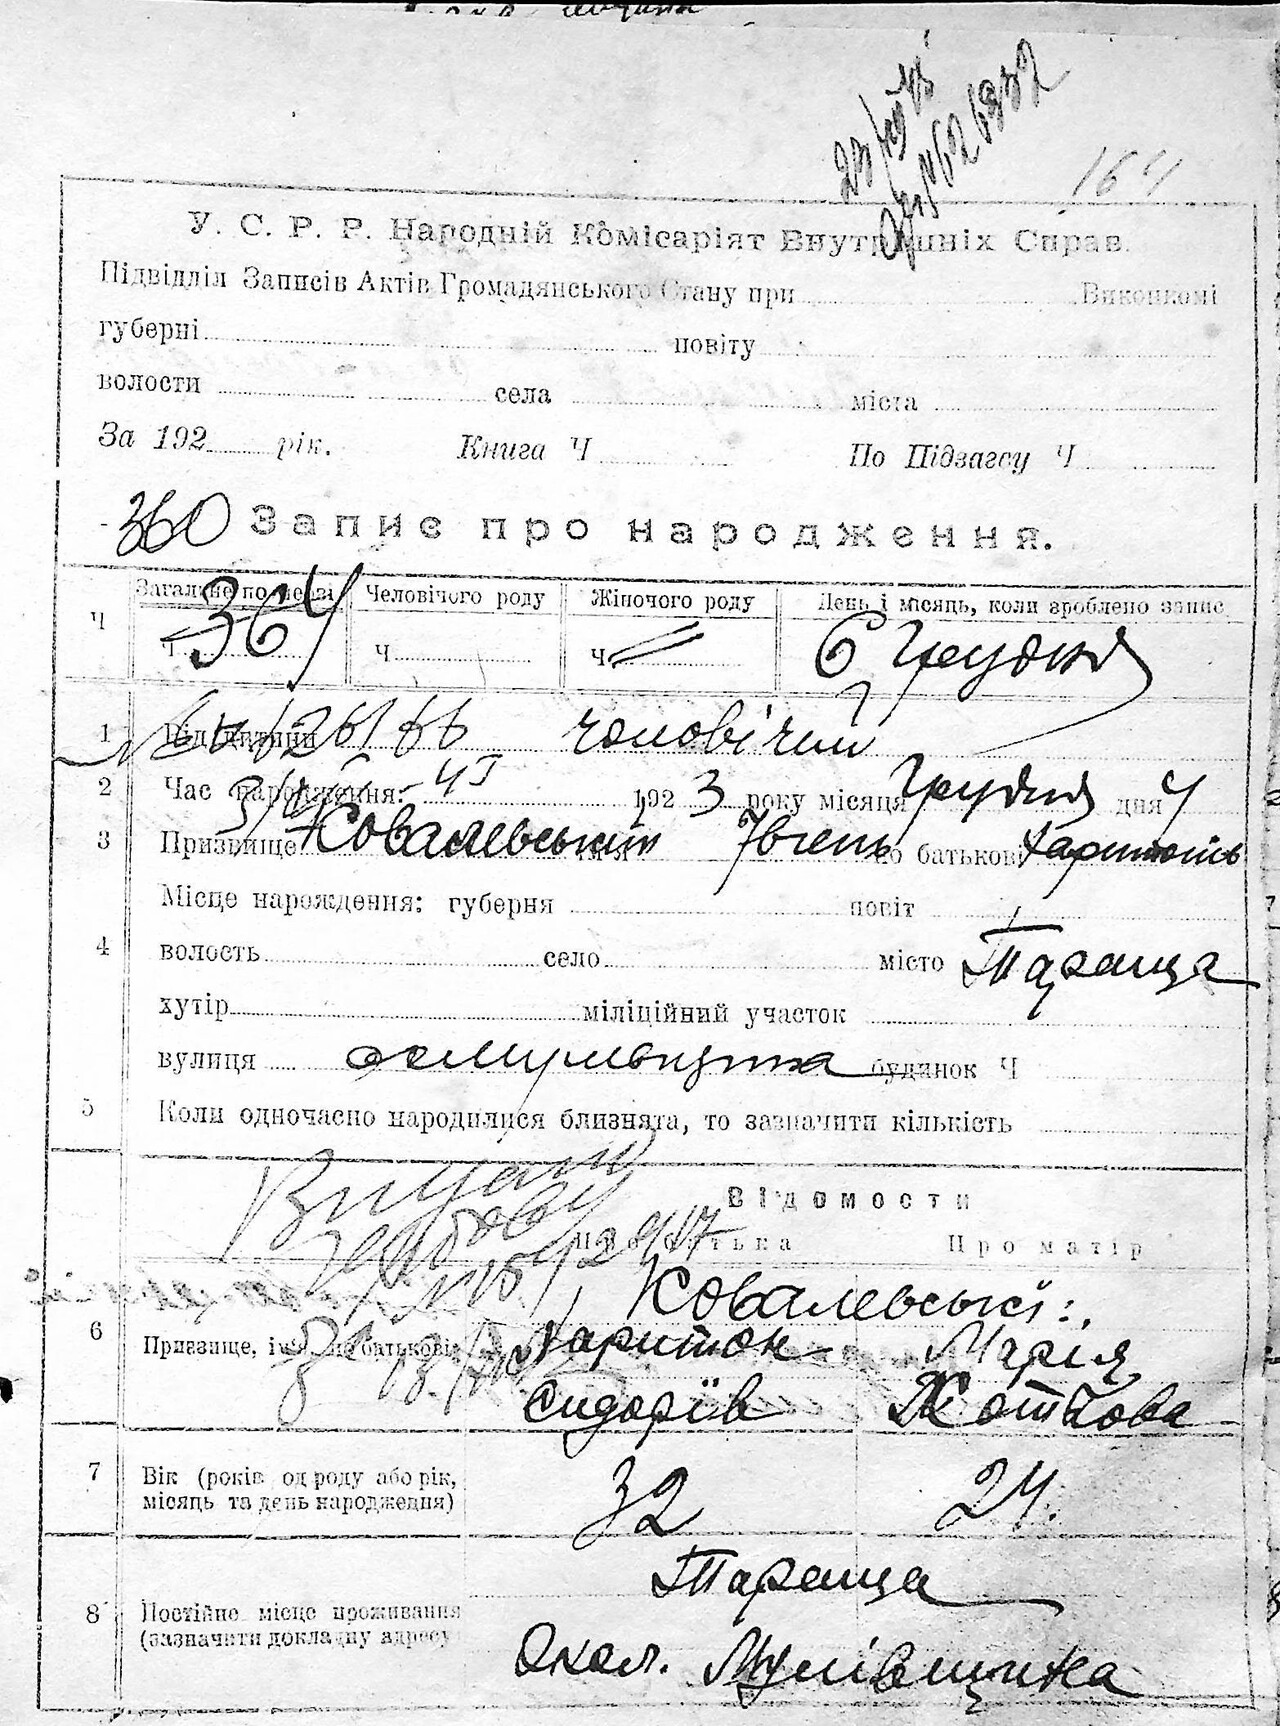 164
У. С. Р. Р. Народній Комісаріят Внутрішніх Справ.
Підвідділ Записів Актів Громадянського Стану при Виконкомі
губерні повіту
волости села міста
За 192 рік. Книга Ч По Підзагсу Ч
360 Запис про народження.
Загальне по черзі Человічого роду Жіночого роду День і місяць, коли зроблено запис
Ч 364 Ч Ч 6 Грудня
1 чоловічий
2 Час народження: 1923 року місяця Грудня дня 4
3 Призвище Ковалевський Івген по батькові Харитонів
Місце народження: губерня повіт
4 волость село місто Тараща
хутір міліційний участок
вулиця будинок Ч
5 Коли одночасно народилися близнята, то зазначити кількість
Відомости
Про батька Про матір
Ковалевські:
6 Призвище, імя, по батькові Харитон Марія
Сидорів
7 Вік (років од роду або рік, місяць та день народження) 32 24.
8 Постійне місце проживання (зазначити докладну адресу Тараща
Окол. Мулівщина